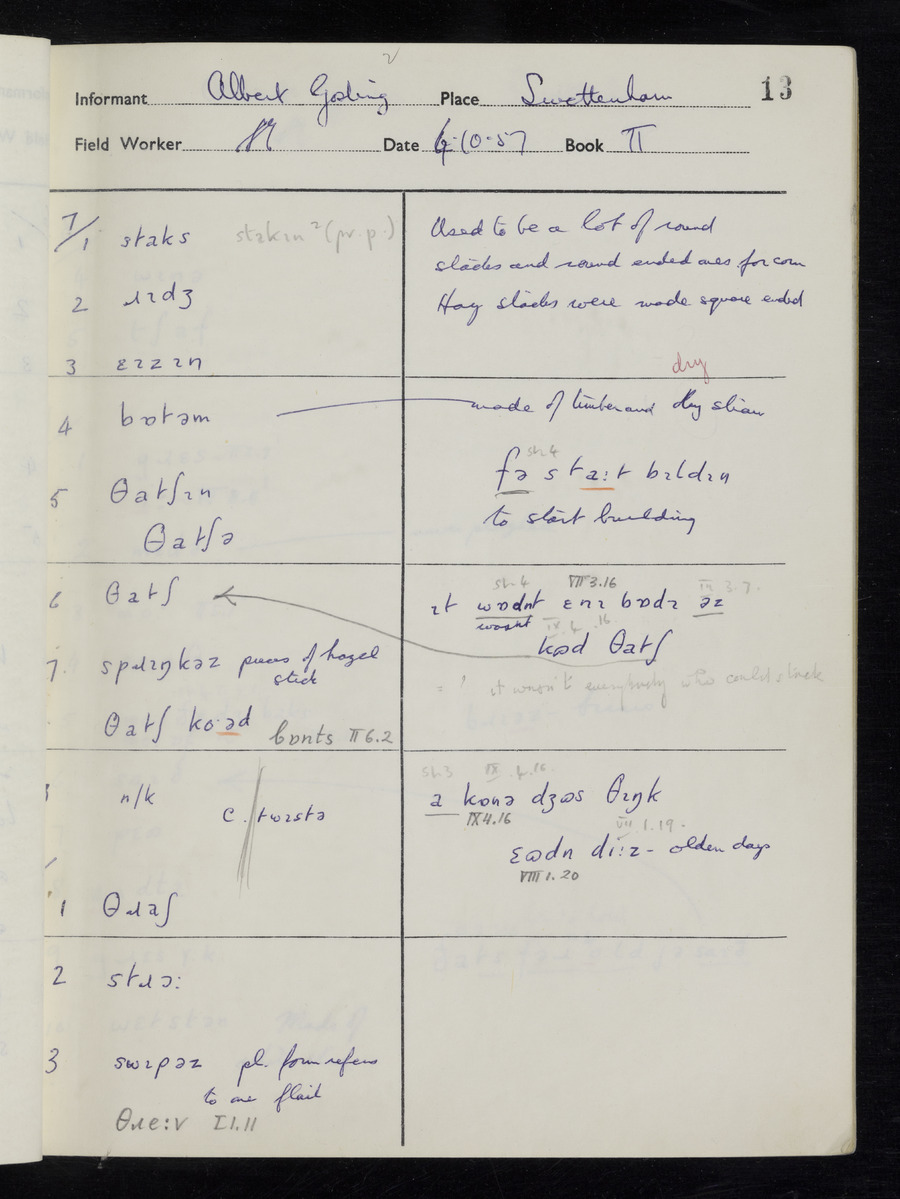 13
Informant Albert Gosling Place Swettenham
Field Worker Date 6·10·57 Book II
7/1 staks stakɪn² (pr.p.)
2 ɹɪdʒ
3 ɛɪzɪn
4 bɒtəm
5 θatʃɪn
θatʃə
6 θatʃ
7. spɹɪŋkəz pieces of hazel
stick
θatʃ kɒ·əd bɒnts II 6.2
n/k
c. twɪstə
1 θɹaʃ
2 stɹɔ:
3 swɪpəz pl. form refers
to one flail
θɹe:v II.11
Used to be a lot of round
stacks and round ended ones for corn
Hay stacks were made square ended
dry
made of timber and dry straw
sh.4
fə sta:t bɪldɪn
to start building
sh.4 VII 3.16 IX 3.7.
ɪt wɒdnt ɛnɪ bɒdɪ əz
wasnt IX.4.16
kɒd θatʃ
= ' it wasn't everybody who could stack
sh.3 IX.4.16.
a kɒnə dʒɷs θɪŋk
IX 4.16 VII.1.19.
ɛɷdn di:z - olden days
VIII 1.20